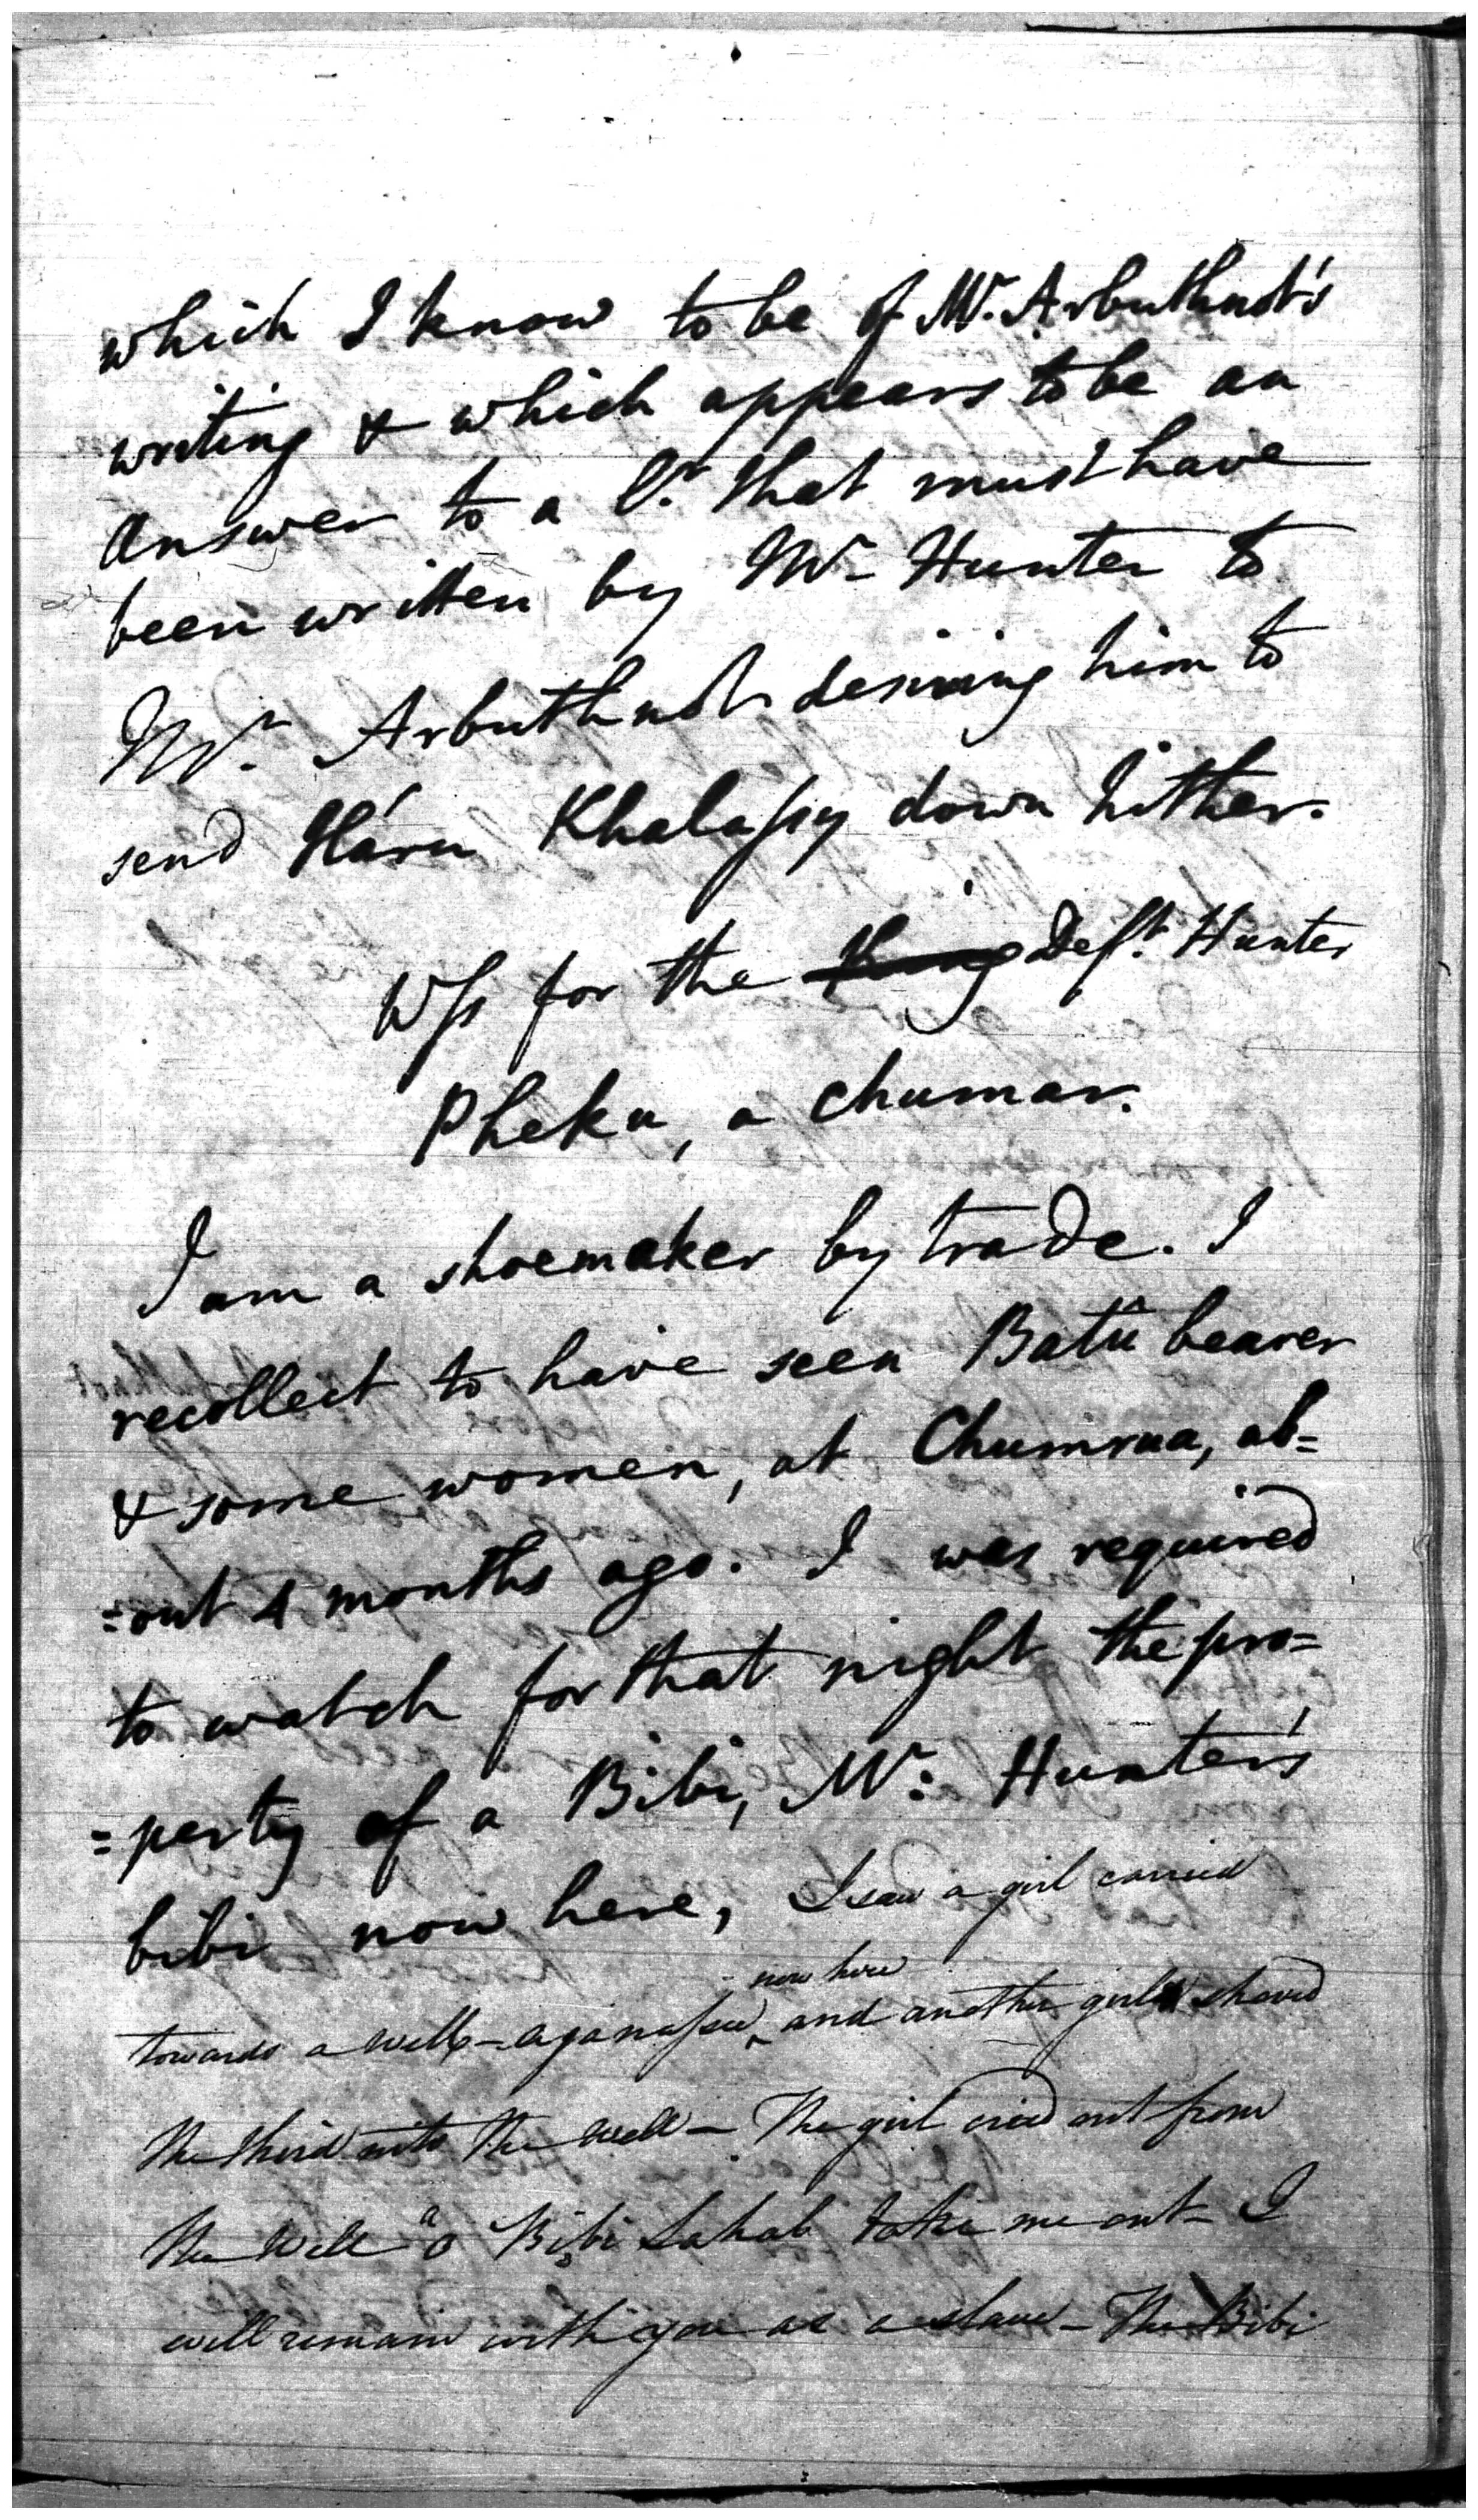 which I know to be of Mr. Arbuthnot's
writing & which appears to be an
answer to a lr. that must have
been written by Mr Hunter to
Mr. Arbuthnot desiring him to
send Háru Khalassy down hither.
Wss for the King Deft. Hunter
Pheku, a chumar.
I am a shoemaker by trade. I
recollect to have seen Batû bearer
& some women, at Chumraa, ab=
=out 4 months ago. I was required
to watch for that night the pro=
=perty of a Bibi, Mr: Hunter's
bibi now here, I saw a girl carried
now here
towards a well – and another girl shoved
the third into the well – The girl cried out from
the well "o Bibi Sahab take me out – I
will remain with you as a slave – The Bibi